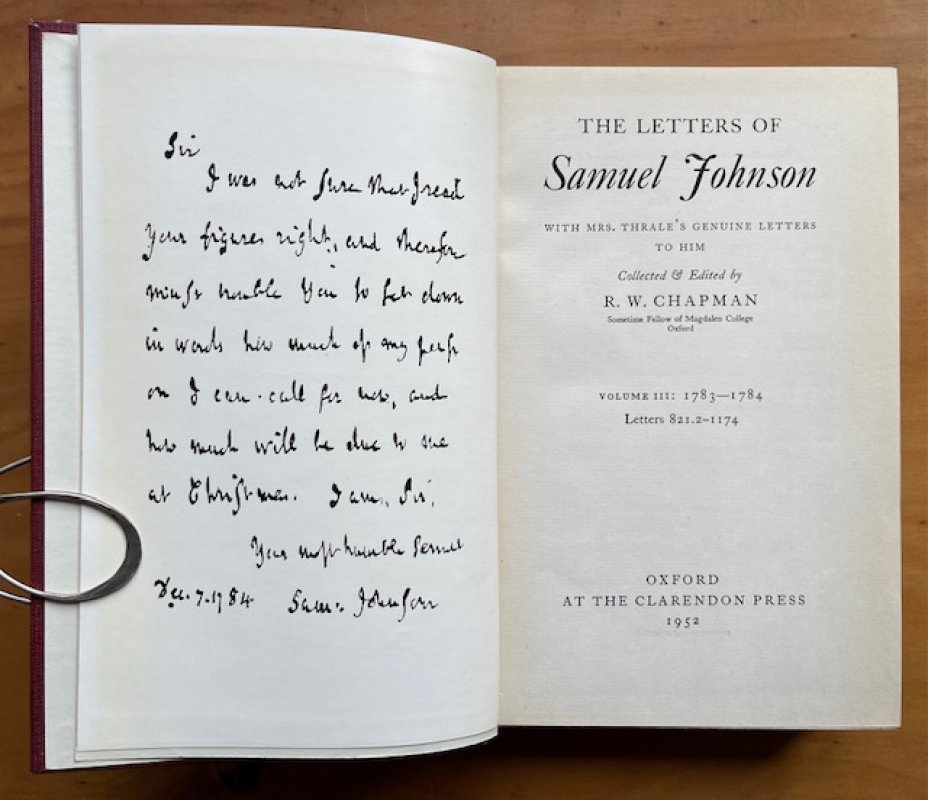 Sir
I was not sure that I read
Your figures right, and therefore
must trouble You to set down
in words how much of my pens
on I can call for now, and
how much will be due to me
at Christmas. I am, Sir,
Your most humble servant
Dec. 7. 1784. Sam: Johnson
THE LETTERS OF
Samuel Johnson
WITH MRS. THRALE'S GENUINE LETTERS
TO HIM
Collected & Edited by
R. W. CHAPMAN
Sometime Fellow of Magdalen College
Oxford
VOLUME III: 1783—1784
Letters 821.2–1174
OXFORD
AT THE CLARENDON PRESS
1952